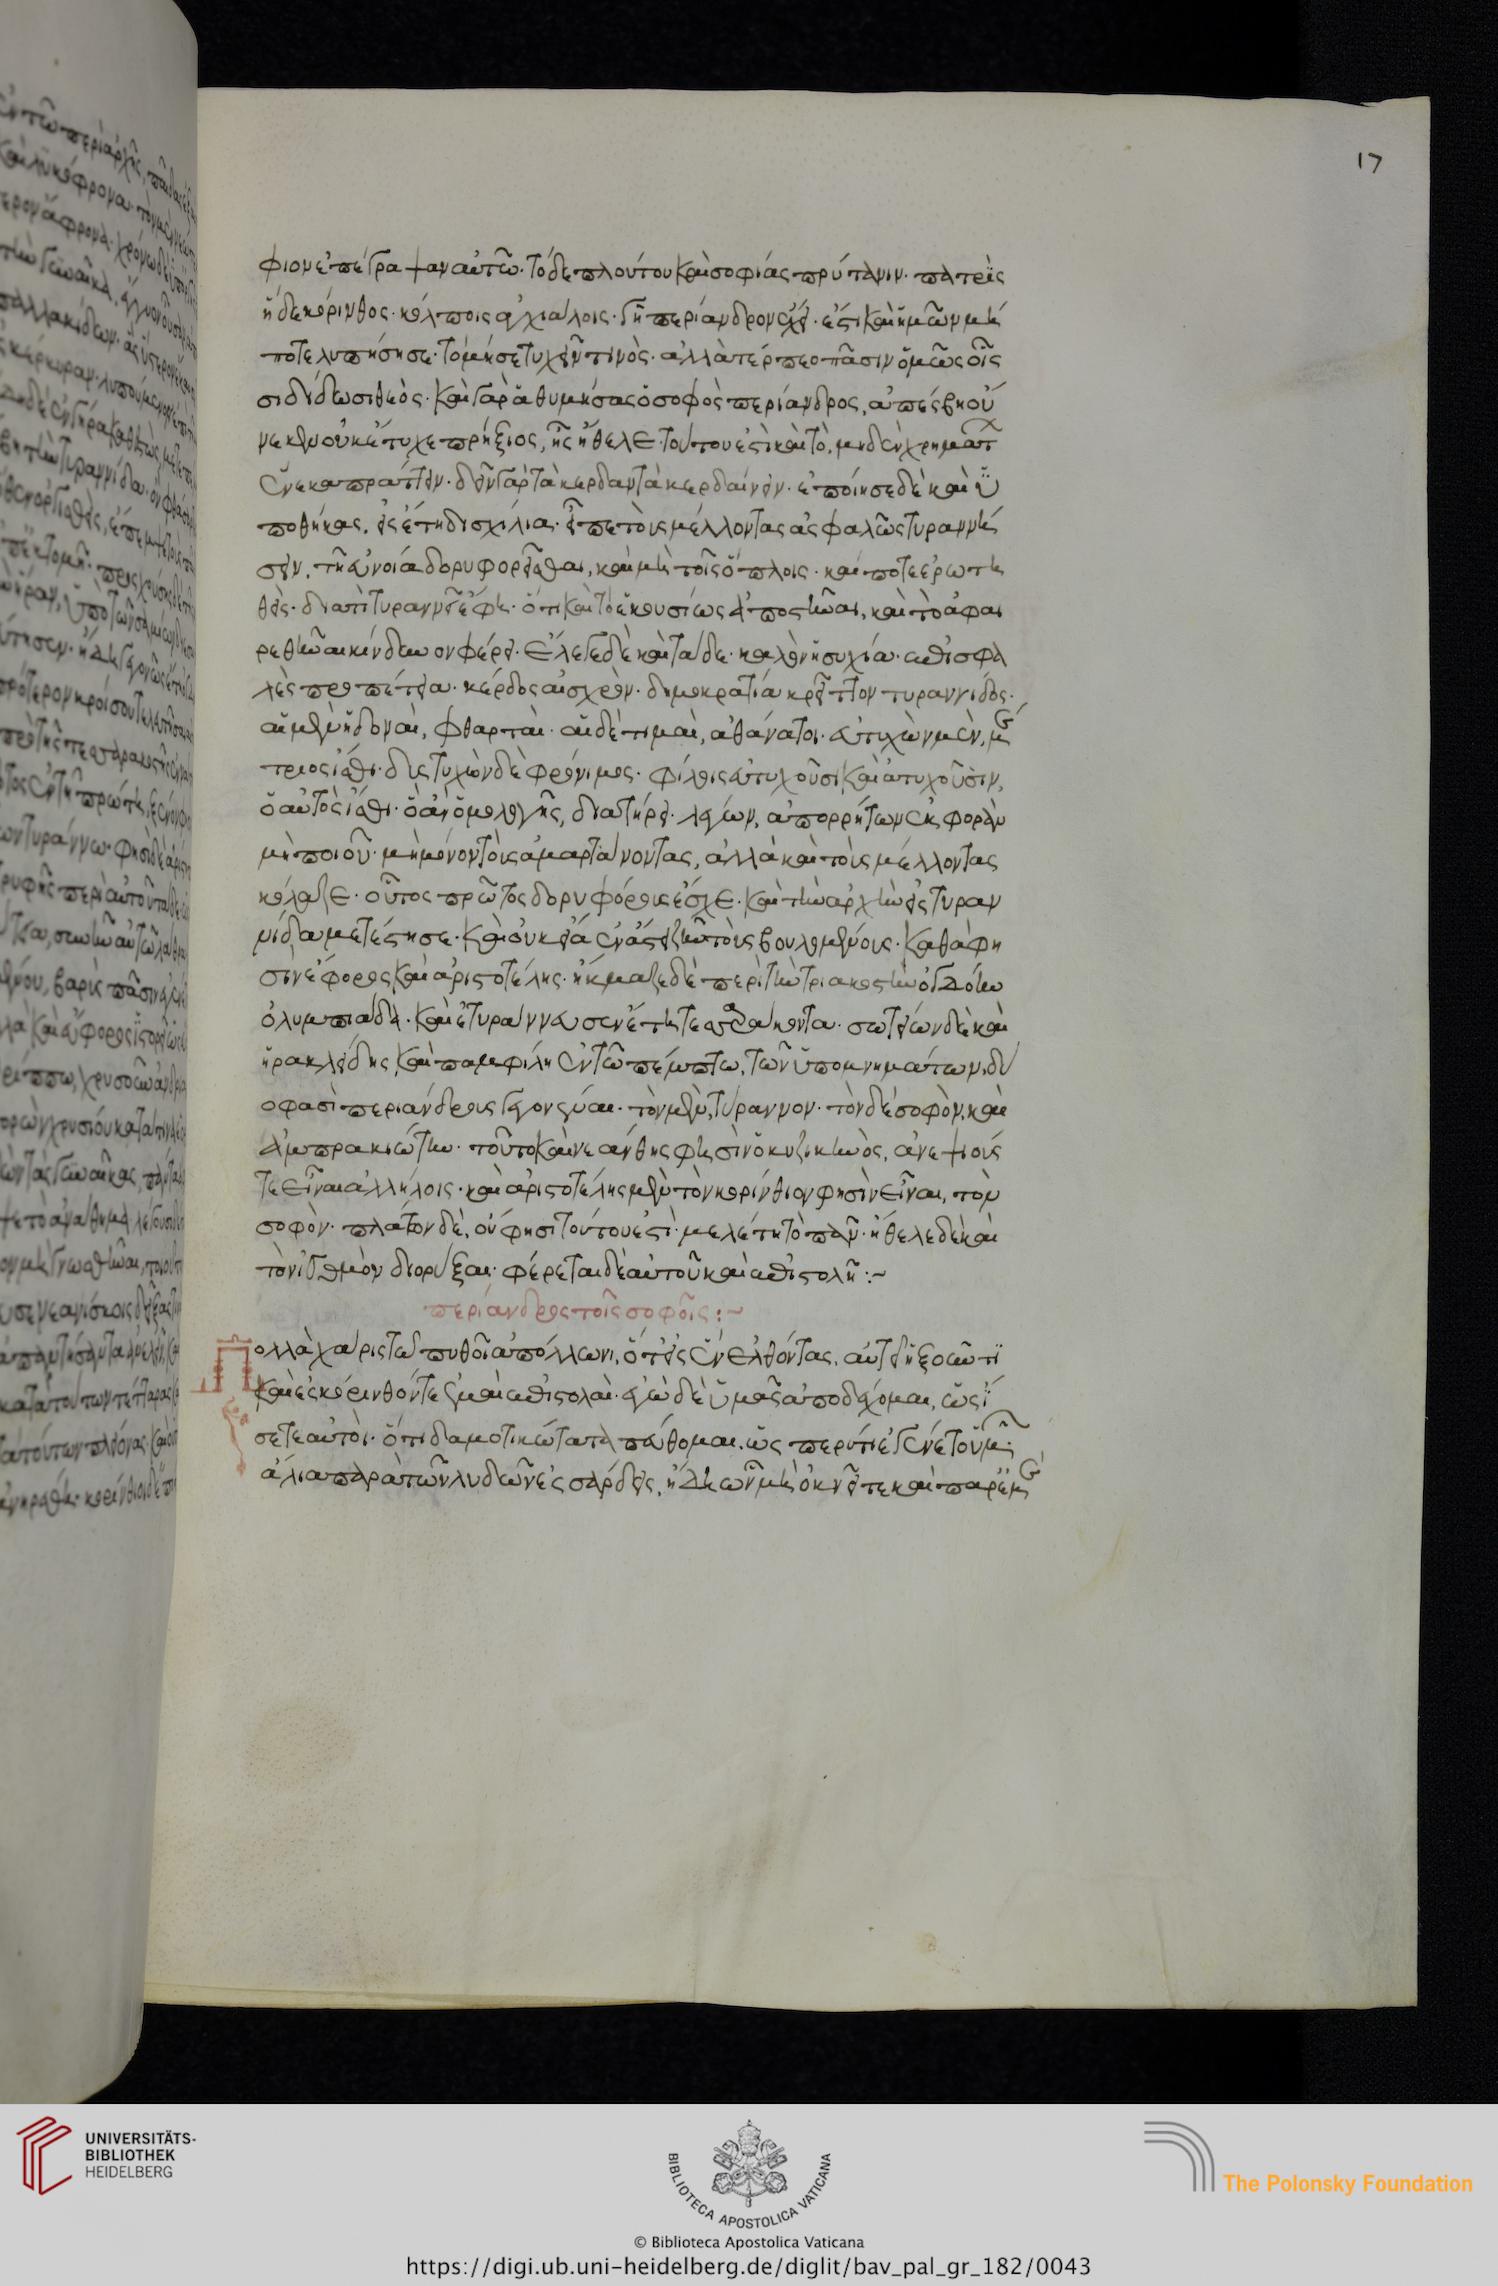 17
φιον ἐπέγραψαν αὐτῶ· τόδε πλούτου καὶ σοφίας πρύτανιν· πατρὶς
ἥδε κόρινθος· κόλποις ἀγχιάλοις· γῆ περίανδρον ἔχει· ἔστι καὶ ἡμῶν μή
ποτε λυπήσησε· τὸ μή σε τυχεῖν τινὸς· ἀλλὰ τέρπεο πᾶσιν ὁμῶς οἷς
σι δίδωσι θεὸς· καὶ γὰρ ἀθυμήσας ὁ σοφὸς περίανδρος, ἀπέσβη οὕ
νεκεν οὐκ ἔτυχε πρήξιος, ἧς ἤθελε· τούτου ἐστὶ καὶ τὸ, μηδὲν χρημάτ
ἕνεκα πράττειν· δεῖν γὰρ τὰ κερδαντὰ κερδαίνειν· ἐποίησε δὲ καὶ ὑ
ποθήκας, εἰς ἔτη δισχίλια· εἶπε τοὺς μέλλοντας ἀσφαλῶς τυραννή
σειν, τῆ εὐνοία δορυφορεῖσθαι, καὶ μὴ τοῖς ὅπλοις· καί ποτε ἐρωτη
θεὶς· διατὶ τυραννεῖ ἔφη· ὅτι καὶ τὸ ἑκουσίως ἀποστῆναι, καὶ τὸ ἀφαι
ρεθῆναι κίνδυνον φέρει· ἔλεγε δὲ καὶ τάδε· καλὸν ἡσυχία· ἐπισφα
λὲς προπέτεια· κέρδος αἰσχρὸν· δημοκρατία κρεῖττον τυραννίδος·
αἱ μὲν ἡδοναὶ, φθαρταὶ· αἱ δὲ τιμαὶ, ἀθάνατοι· εὐτυχῶν μὲν, μέ
τριος ἴσθι· δυστυχῶν δὲ φρόνιμος· φίλοις εὐτυχοῦσι καὶ ἀτυχοῦσιν,
ὁ αὐτὸς ἴσθι· ὃ ἂν ὁμολογῆς, διατήρει· λόγων, ἀπορρήτων ἐκφορὰν
μὴ ποιοῦ· μὴ μόνον τοὺς ἁμαρτάνοντας, ἀλλὰ καὶ τοὺς μέλλοντας
κόλαζε· οὗτος πρῶτος δορυφόρους ἔσχε· καὶ τὴν ἀρχὴν εἰς τυραν
νίδα μετέστησε· καὶ οὐκ εἴα ἐν ἄστει ζῆν τοὺς βουλομένους· καθά φη
σιν ἔφορος καὶ ἀριστοτέλης· ἤκμαζε δὲ περὶ τὴν τριακοστὴν ὀγδόην
ὀλυμπιάδα· καὶ ἐτυράννευσεν ἔτη τεσσαράκοντα· σωτείων δὲ καὶ
ἡρακλείδης καὶ παμφίλη ἐν τῶ πέμπτω, τῶν ὑπομνημάτων, δύ
ο φασὶ περιάνδρους γεγονέναι· τὸν μὲν, τύραννον· τὸν δὲ σοφὸν, καὶ
ἀμπρακιώτην· τοῦτο καὶ νεάνθης φησὶν ὁ κυζικηνὸς, ἀνεψιούς
τε εἶναι ἀλλήλοις· καὶ ἀριστοτέλης μὲν τὸν κορίνθιον φησὶν εἶναι, τὸν
σοφὸν· πλάτων δὲ, οὔ φησι τούτου ἐστὶ· μελέτη τὸ πᾶν· ἤθελε δὲ καὶ
τὸν ἰσθμὸν διορύξαι· φέρεται δὲ αὐτοῦ καὶ ἐπιστολὴ :~
περίανδρος τοῖς σοφοῖς :~
Πολλὰ χάρις τῶ πυθοῖ ἀπόλλωνι, ὅτι εἰς ἓν ἐλθόντας, αὐτεὶ ἥξουντι
καὶ ἐς κόρινθόν τε ἐμαὶ ἐπιστολαὶ· ἐγὼ δὲ ὑμᾶς ἀποδέχομαι, ὡς ἴ
στε τε αὐτοὶ· ὅτι δαμοτικώτατα πεύθομαι, ὡς πέρυτι ἐγένετο ὑμῶν
ἁλία παρὰ τῶν λυδῶν ἐς σάρδεις, ἤδη ὦν μὴ ὀκνεῖτε καὶ παρ' ἐμέ
UNIVERSITÄTS-
BIBLIOTHEK
HEIDELBERG
BIBLIOTECA APOSTOLICA VATICANA
The Polonsky Foundation
© Biblioteca Apostolica Vaticana
https://digi.ub.uni-heidelberg.de/diglit/bav_pal_gr_182/0043